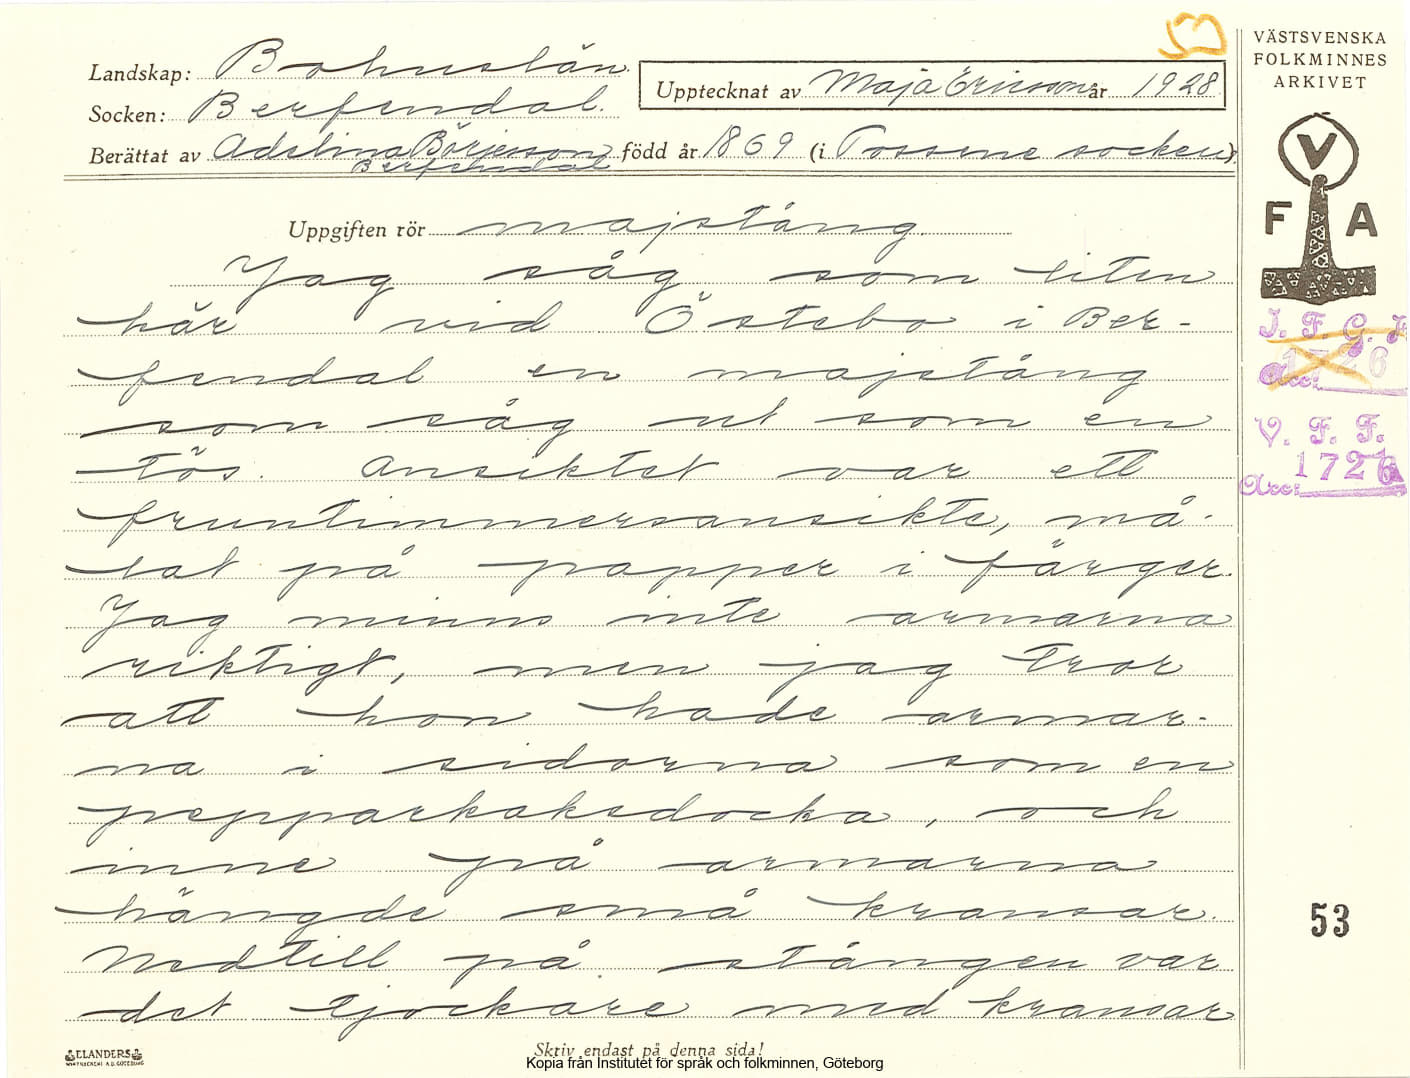 Landskap: Bohuslän.
Socken: Berfendal.
Upptecknat av Maja Ericsson år 1928
Berättat av Adelina Börjesson född år 1869 (i Tossene socken).
Berfendal
VÄSTSVENSKA
FOLKMINNES
ARKIVET
V
F A
Uppgiften rör majstång
Jag såg som liten
här vid Östebo i Ber-
fendal en majstång
som såg ut som en
tös. Ansiktet var ett
fruntimmersansikte, må-
lat på papper i färger.
Jag minns inte armarna
riktigt, men jag tror
att hon hade armar-
na i sidorna som en
pepparkaksdocka, och
inne på armarna
hängde små kransar.
Nedtill på stången var
det tjockare med kransar
I. F. G. H
Acc: 1726
V. F. F.
Acc: 1726
53
ELANDERS
Skriv endast på denna sida!
Kopia från Institutet för språk och folkminnen, Göteborg